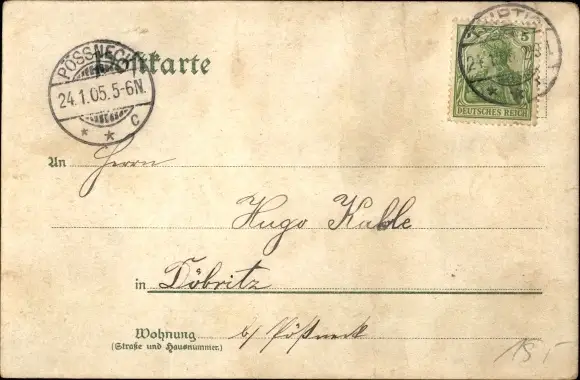 Postkarte
PÖSSNECK
24.1.05.5-6N.
* * C
5
DEUTSCHES REICH
An Herrn
Hugo Kahle
in Döbritz
Wohnung b/ Pößneck
(Straße und Hausnummer.)